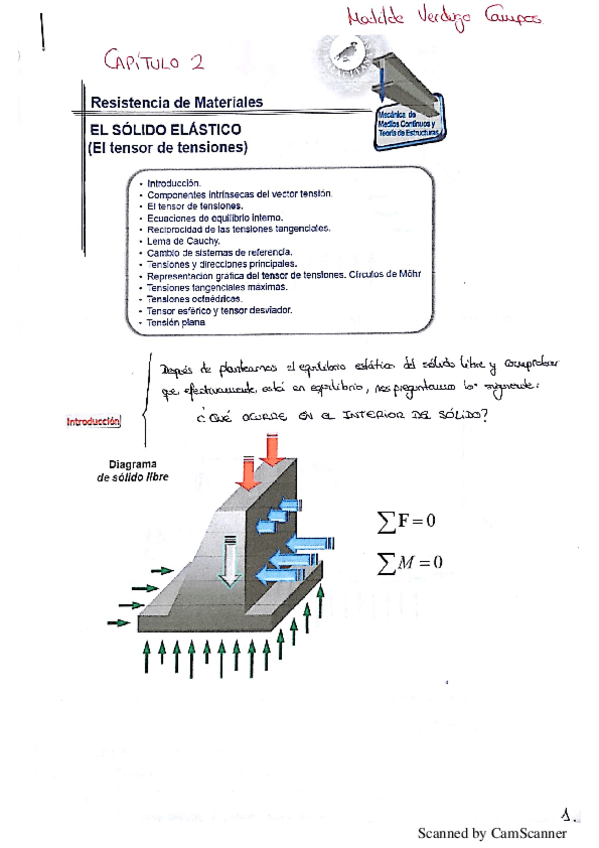 Matilde Verdugo Campos
CAPÍTULO 2
Resistencia de Materiales
EL SÓLIDO ELÁSTICO
(El tensor de tensiones)
Mecánica de
Medios Continuos y
Teoría de Estructuras
• Introducción.
• Componentes intrínsecas del vector tensión.
• El tensor de tensiones.
• Ecuaciones de equilibrio interno.
• Reciprocidad de las tensiones tangenciales.
• Lema de Cauchy.
• Cambio de sistemas de referencia.
• Tensiones y direcciones principales.
• Representación gráfica del tensor de tensiones. Círculos de Möhr
• Tensiones tangenciales máximas.
• Tensiones octaédricas.
• Tensor esférico y tensor desviador.
• Tensión plana
Después de plantearnos el equilibrio estático del sólido libre y comprobar
que efectivamente está en equilibrio, nos preguntamos lo siguiente:
¿QUÉ OCURRE EN EL INTERIOR DEL SÓLIDO?
Introducción
Diagrama
de sólido libre
∑F = 0
∑M = 0
1.
Scanned by CamScanner